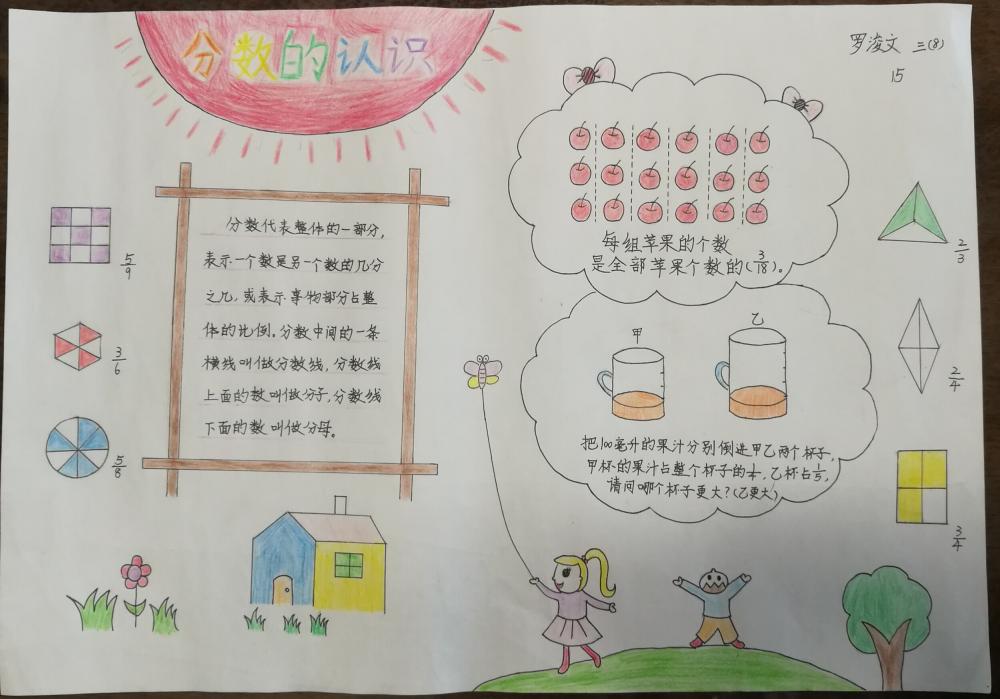 分数的认识
罗浚文 三(8)
15
分数代表整体的一部分,
表示一个数是另一个数的几分
之几,或表示事物部分占整
体的比例。分数中间的一条
横线叫做分数线,分数线
上面的数叫做分子,分数线
下面的数叫做分母。
5/9
3/6
5/8
每组苹果的个数
是全部苹果个数的(3/18)。
甲
乙
把100毫升的果汁分别倒进甲乙两个杯子,
甲杯的果汁占整个杯子的1/4,乙杯占1/5,
请问哪个杯子更大?(乙更大)
2/3
2/4
3/4